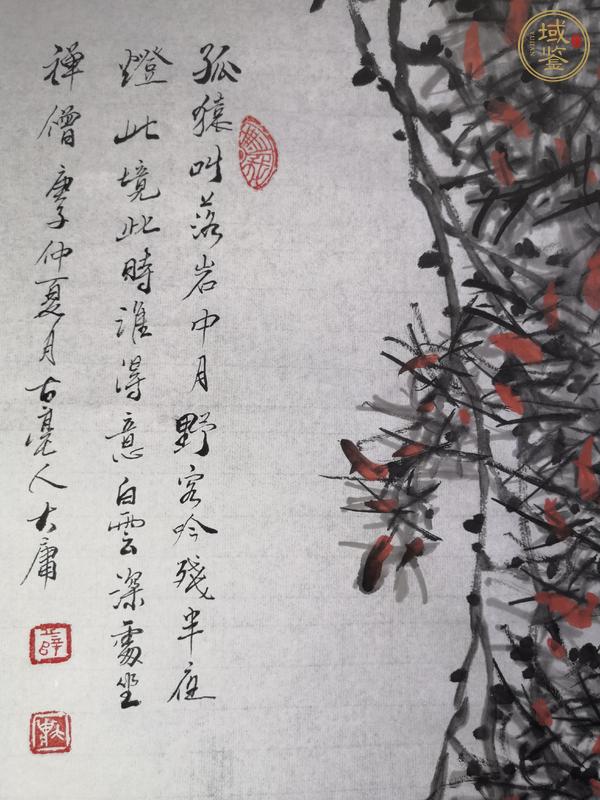 孤猿叫落岩中月野客吟殘半庭
燈此境此時誰得意白雲深處坐
禪僧 庚子仲夏月古亳人大庸
薛
域鉴
YUJIAN